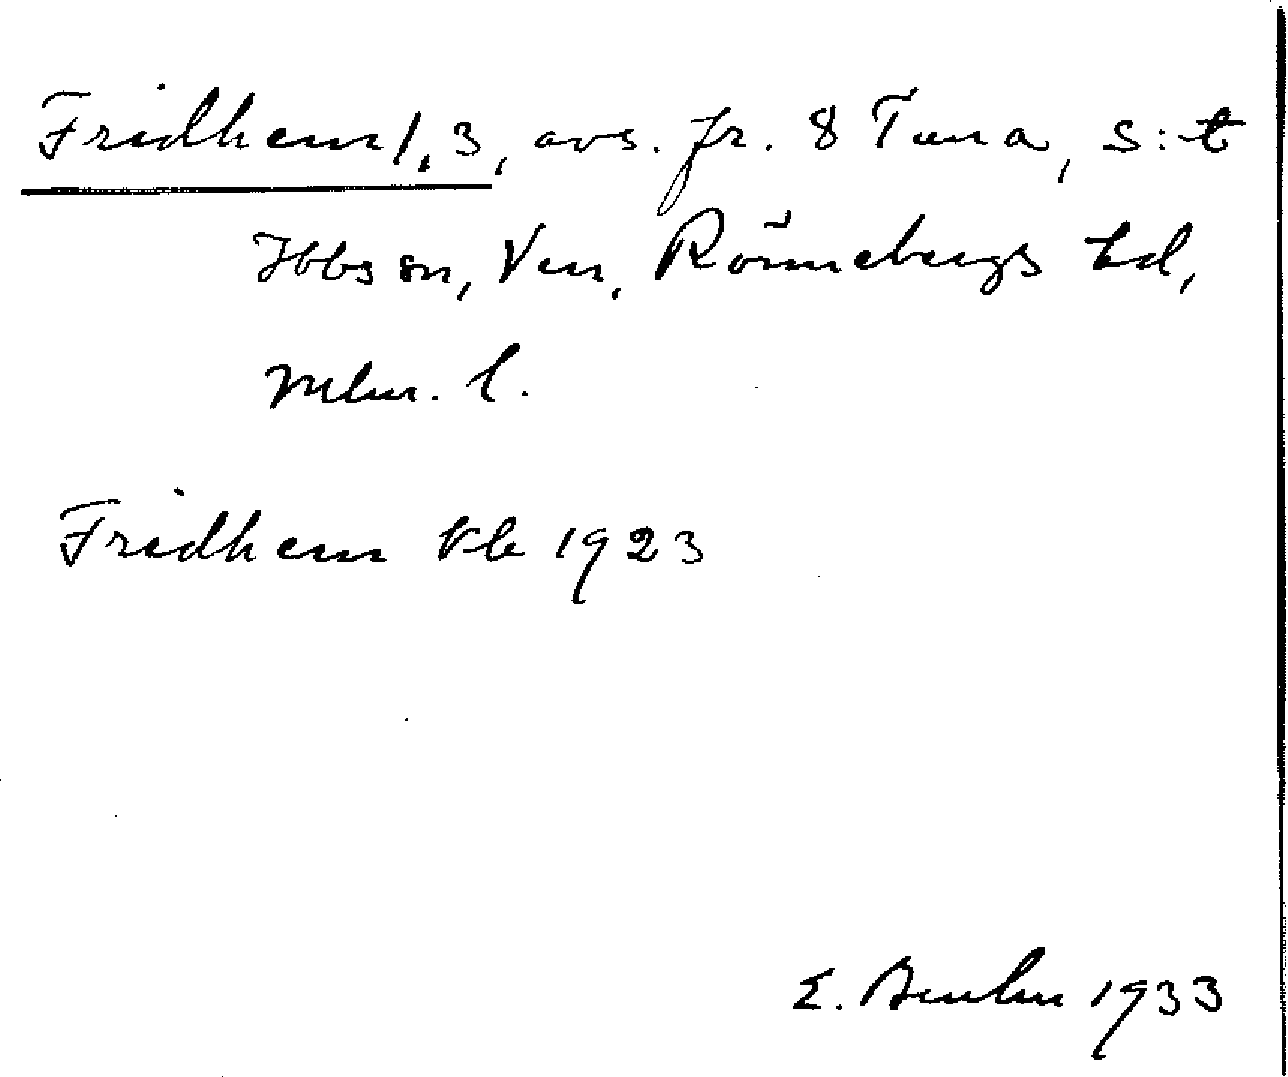 Fridhem 1,3, avs. fr. 8 Tuna, S:t
Ibbs sn, Ven, Rönnebergs hd,
Mlm. l.
Fridhem Vb 1923
E. 1933